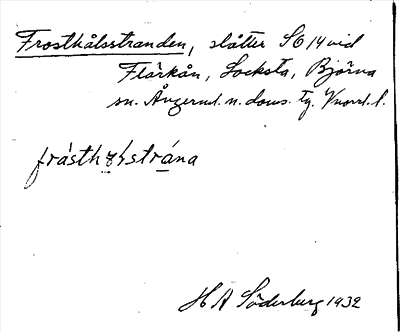 Frosthålsstranden, slåtter SO 14 vid
Flärkån, Locksta, Björna
sn. Ångerml. n. doms. tg. Vnorrl. l.
H A Söderberg 1932